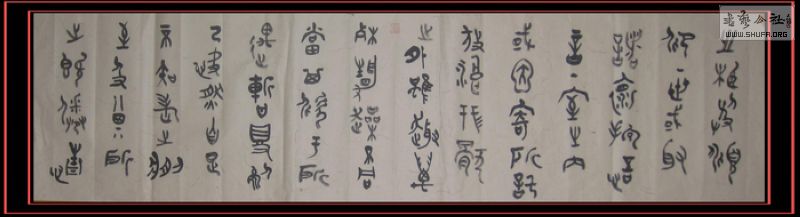 書藝公社
WWW.SHUFA.ORG
之相與俯
仰一世或取
諸懷抱悟
言一室之內
或因寄所託
放浪形骸
之外雖趣萬
殊靜躁不同
當其欣于所
遇暫得於
己快然自足
不知老之將
至及其所
之既倦